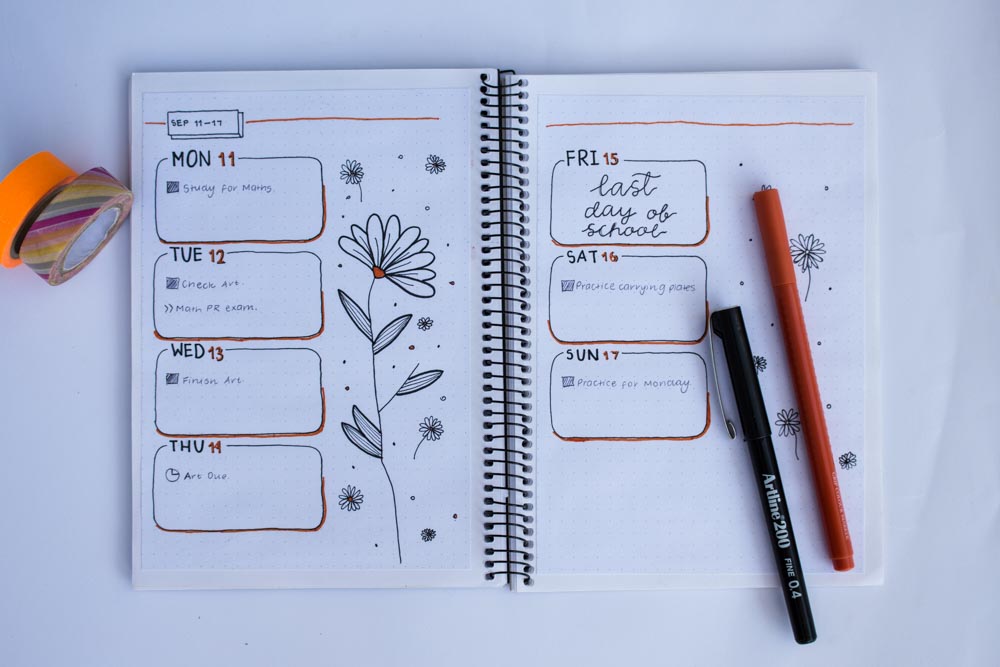 SEP 11-17
MON 11
Study for Maths.
TUE 12
Check Art.
>> Math PR exam.
WED 13
Finish Art
THU 14
Art Due.
FRI 15
last
day of
school
SAT 16
Practice carrying plates
SUN 17
Practice for Monday.
Artline 200
FINE 0.4